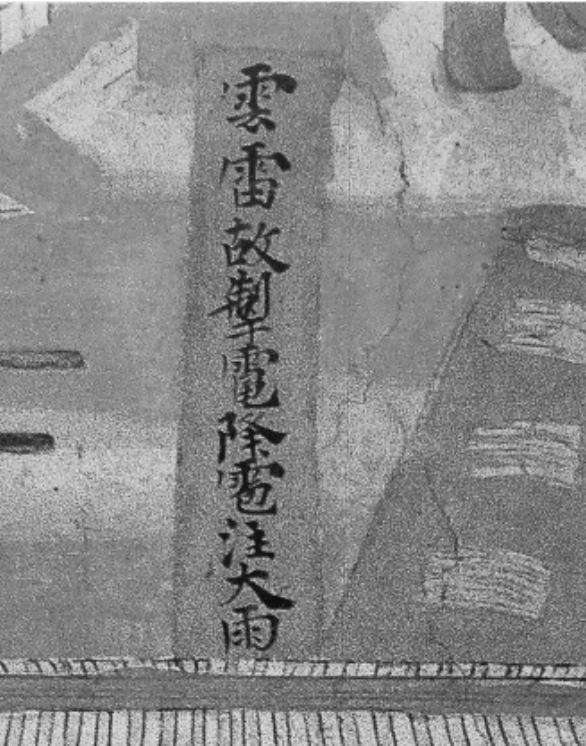 雲雷故掣電降雹注大雨